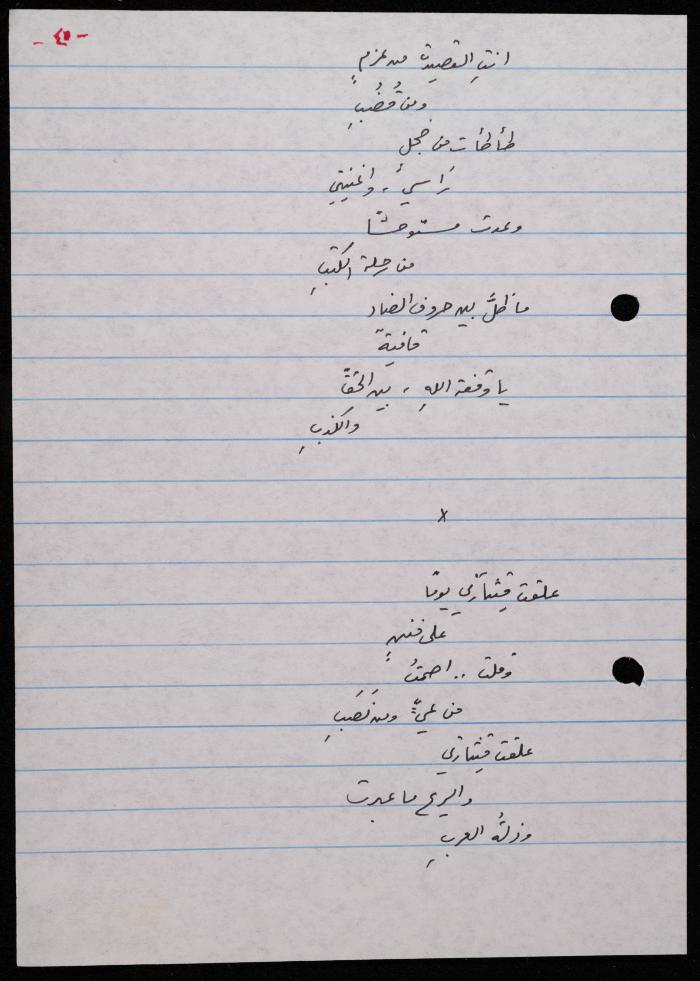 - ٤٠ -
انتِ القصيدة من عزمٍ
ومن قُضُبِ
طأطأت من خجل
رَاسيْ، واغنيتي
وعدت مستوحشًا
من رحلة الكتبِ
ما ظلَّ بين حروف الضاد
قافيةٌ
يا وقفة اللهِ، بين الحقِّ
والكذبِ
x
علقت قيثاَرتي يومًا
على فننٍ
وقلت .. اصمتُ
من عيٍّ ومن نَصَبِ
علقت قيثارتي
والريح ما عبرت
وذلَّه العربِ